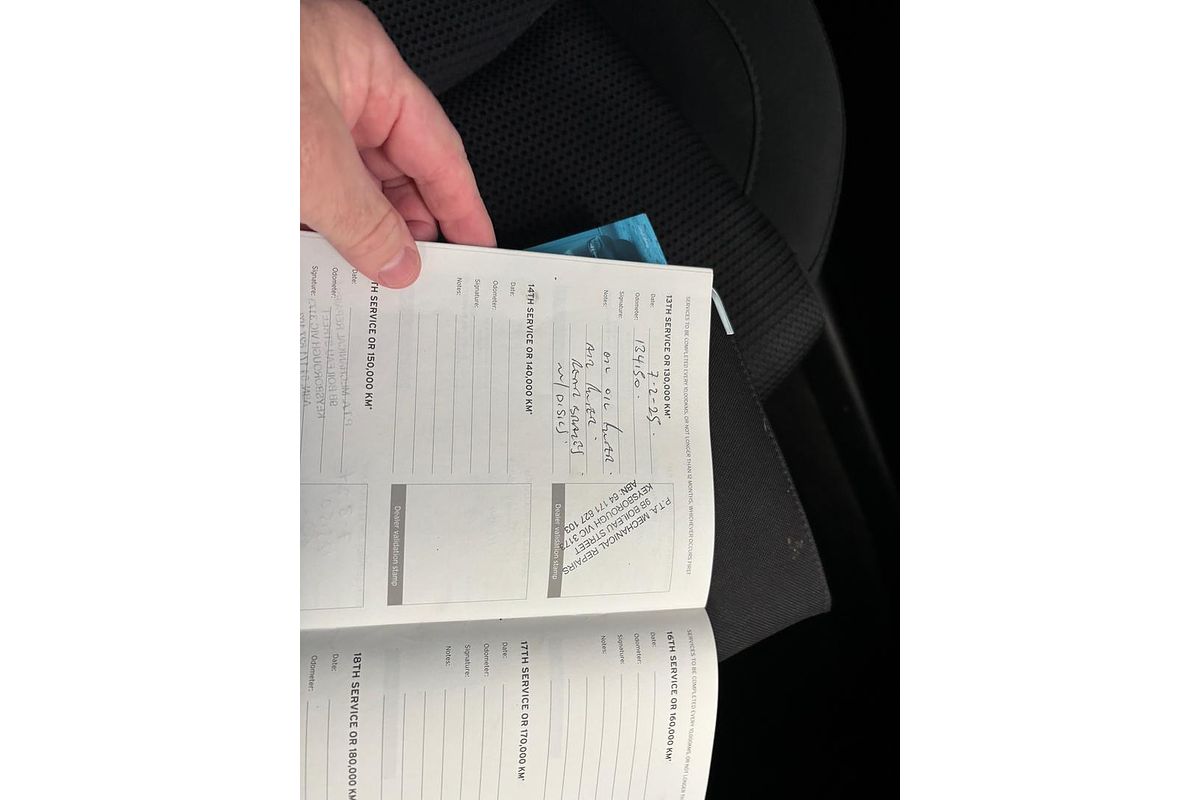 SERVICES TO BE COMPLETED EVERY 10,000KMS, OR NOT LONGER THAN 12 MONTHS, WHICHEVER OCCURS FIRST
13TH SERVICE OR 130,000 KM*
Date: 7-2-25.
Odometer: 134150.
Signature:
Notes: OIL OIL FILTER.
AIR FILTER.
REAR BRAKES
W/DISCS.
P.T.A. MECHANICAL REPAIRS
9B BOILEAU STREET
KEYSBOROUGH VIC 3173
ABN: 64 171 627 103
Dealer validation stamp
14TH SERVICE OR 140,000 KM*
Date:
Odometer:
Signature:
Notes:
Dealer validation stamp
TH SERVICE OR 150,000 KM*
Date:
Odometer:
Signature:
SERVICES TO BE COMPLETED EVERY 10,000KMS, OR NOT LONGER
16TH SERVICE OR 160,000 KM*
Date:
Odometer:
Signature:
Notes:
17TH SERVICE OR 170,000 KM*
Date:
Odometer:
Signature:
Notes:
18TH SERVICE OR 180,000 KM
Date:
Odometer: